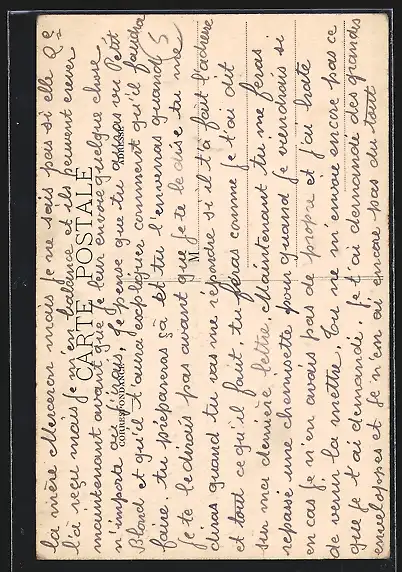 la mère Merceron mais je ne sais pas si elle
l'a reçu mais je m'en balance et ils peuvent crever
maintenant avant que je leur envoie quelque chose
n'importe au jibais. Je pense que tu auras vu Petit
Blond et qu'il t'aura expliquer comment qu'il faudra
faire, tu prépareras ça et tu l'enverras quand
je te le dirais pas avant que je te le dise tu me
diras quand tu vas me répondre si il t'a fait l'adresse
et tout ce qu'il faut, tu feras comme je t'ai dit
sur ma dernière lettre. Maintenant tu me feras
repasse une chemisette pour quand je viendrais si
en cas je n'en avais pas de propre et j'ai hate
de venir la mettre. Tu ne m'envoie encore pas ce
que je t'ai demandé. Je t'ai demandé des grands
enveloppes et je n'en ai encore pas du tout
CARTE POSTALE
CORRESPONDANCE
ADRESSE
M